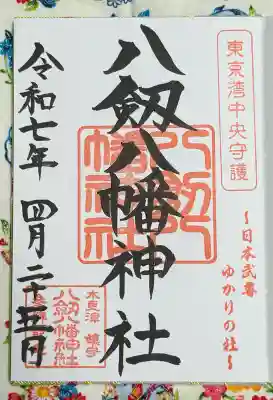 東京湾中央守護
～日本武尊
ゆかりの社～
八剱八幡神社
八剱八幡神社
令和七年 四月二十五日
木更津 鎮守
八剱八幡神社